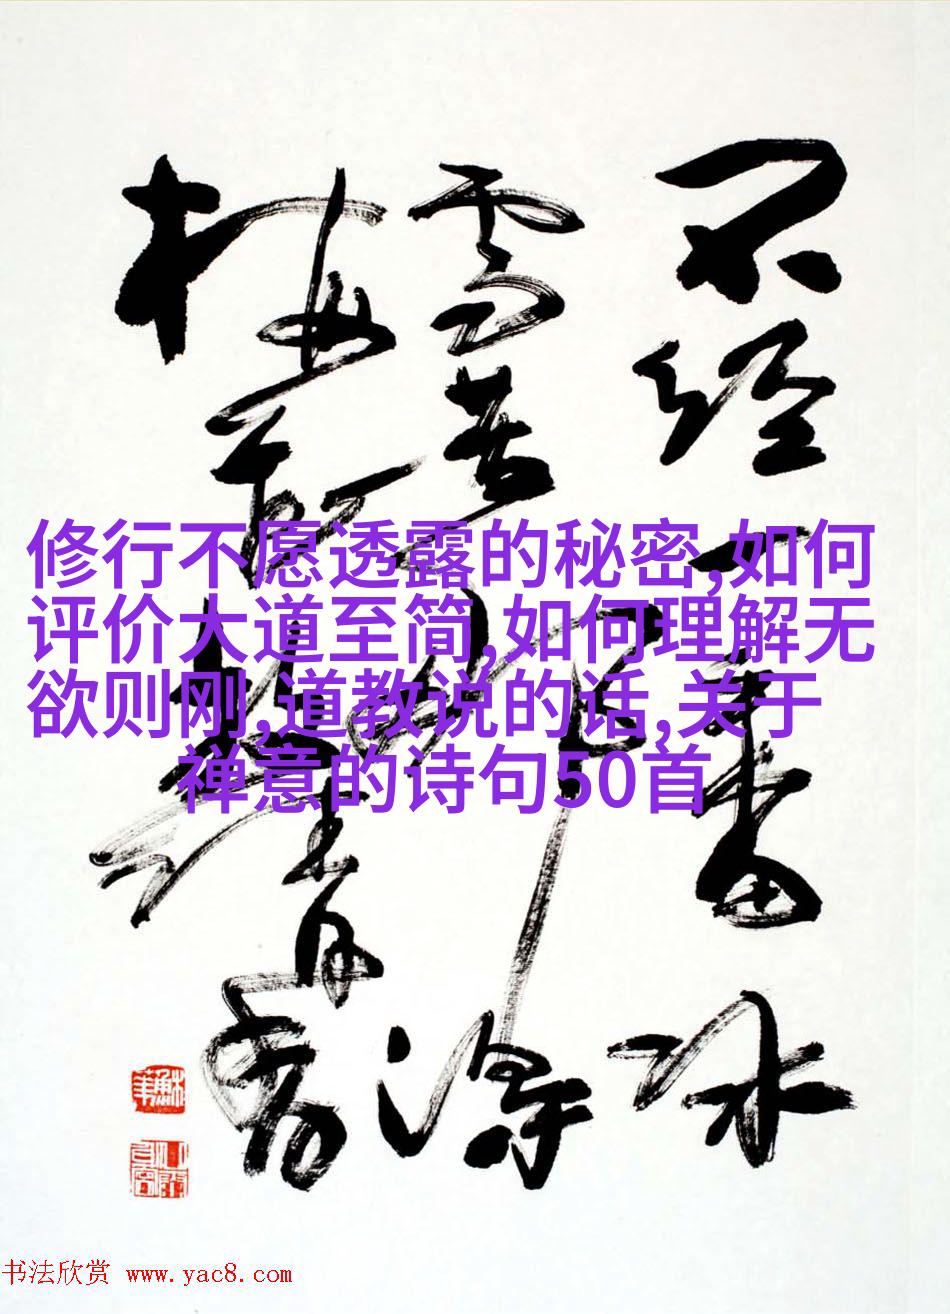 不经一番冰
雪苦 得
梅 香
修行不愿透露的秘密,如何
评价大道至简,如何理解无
欲则刚,道教说的话,关于
禅意的诗句50首
书法欣赏 www.yac8.com